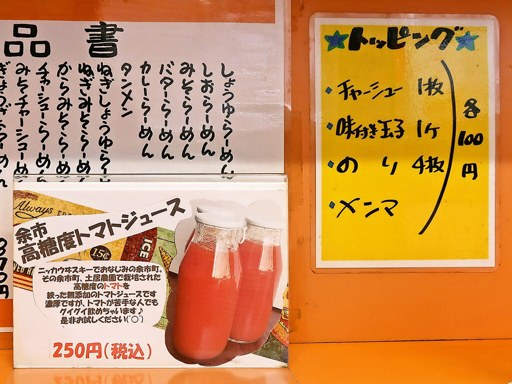 品書
しょうゆらーめん
しおらーめん
みそらーめん
バターらーめん
カレーらーめん
タンメン
ねぎしょうゆらーめん
ねぎみそらーめん
からみそらーめん
チャーシューらーめん
みそチャーシューめん
870円
★トッピング★
・チャーシュー 1枚
・味付き玉子 1ヶ
・のり 4枚
・メンマ
各100円
Always
15¢
ICE
余市
高糖度トマトジュース
ニッカウヰスキーでおなじみの余市町、
その余市町、土居農園で栽培された
高糖度のトマトを
絞った無添加のトマトジュースです
濃厚ですが、トマトが苦手な人でも
グイグイ飲めちゃいます♪
是非お試しください(^○^)
250円(税込)